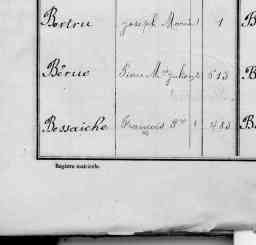 Bertru Joseph Marie 1 1 B
Bérue Pierre M 513 B
Bessaiche François 1 483 B
Registre matricule.